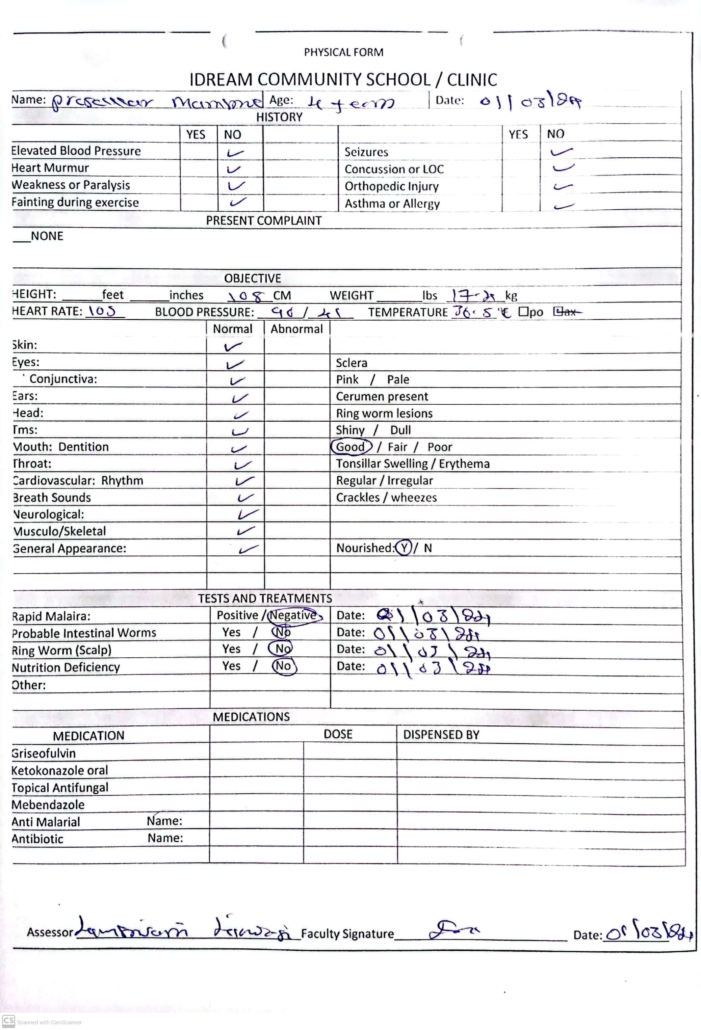 PHYSICAL FORM
IDREAM COMMUNITY SCHOOL / CLINIC
Name: Age: Date: 01 03
HISTORY
YES NO YES NO
Elevated Blood Pressure ✓ Seizures ✓
Heart Murmur ✓ Concussion or LOC ✓
Weakness or Paralysis ✓ Orthopedic Injury ✓
Fainting during exercise ✓ Asthma or Allergy ✓
PRESENT COMPLAINT
__NONE
OBJECTIVE
HEIGHT: ______feet ______inches 108 CM WEIGHT ______lbs kg
HEART RATE: BLOOD PRESSURE: TEMPERATURE 36.5 ℃ ☐po ☐ax
Normal Abnormal
Skin: ✓
Eyes: ✓ Sclera
Conjunctiva: ✓ Pink / Pale
Ears: ✓ Cerumen present
Head: ✓ Ring worm lesions
Tms: ✓ Shiny / Dull
Mouth: Dentition ✓ Good / Fair / Poor
Throat: ✓ Tonsillar Swelling / Erythema
Cardiovascular: Rhythm ✓ Regular / Irregular
Breath Sounds ✓ Crackles / wheezes
Neurological: ✓
Musculo/Skeletal ✓
General Appearance: ✓ Nourished: Y / N
TESTS AND TREATMENTS
Rapid Malaira: Positive / Negative Date: 01 03
Probable Intestinal Worms Yes / No Date: 01 03
Ring Worm (Scalp) Yes / No Date: 01 03
Nutrition Deficiency Yes / No Date: 01 03
Other:
MEDICATIONS
MEDICATION DOSE DISPENSED BY
Griseofulvin
Ketokonazole oral
Topical Antifungal
Mebendazole
Anti Malarial Name:
Antibiotic Name:
Assessor Faculty Signature Date: 01 03
CS Scanned with CamScanner